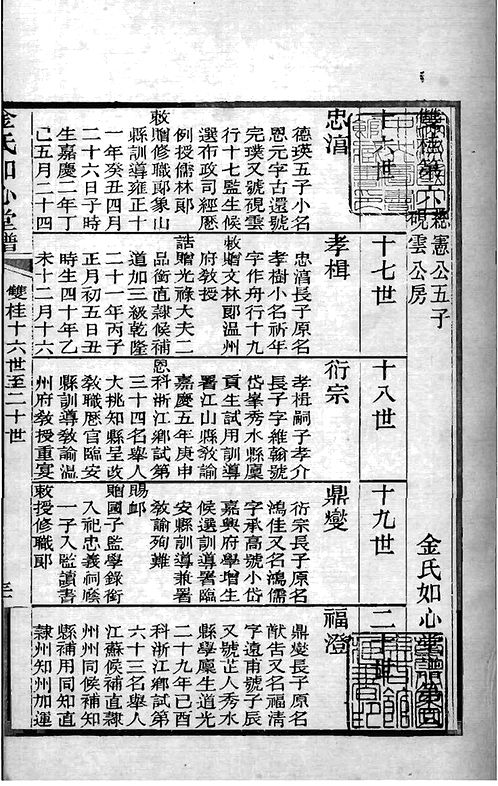 雙桂第六
憲公五子
硯雲公房
金氏如心堂譜第四
十六世
忠
德瑛五子小名
恩元字古還號
完璞又號硯雲
行十七監生候
選布政司經歷
例授儒林郎
敕贈修職郎象山
縣訓導雍正十
一年癸丑四月
二十六日子時
生嘉慶二年丁
巳五月二十四
十七世
孝楫
忠長子原名
孝樹小名祈年
字作舟行十九
敕贈文林郎温州
府教授
誥贈光祿大夫二
品銜直隷候補
道加三級乾隆
二十一年丙子
正月初五日丑
時生四十年乙
未十二月十六
十八世
衍宗
孝楫嗣子孝介
長子字維翰號
岱峯秀水縣廩
貢生試用訓導
署江山縣敎諭
嘉慶五年庚申
恩科浙江鄉試第
三十四名舉人
大挑知縣呈改
敎職歷官臨安
縣訓導敎諭溫
州府敎授重宴
十九世
鼎燮
衍宗長子原名
鴻佳又名鴻儒
字承高號小岱
嘉興府學增生
候選訓導署臨
安縣訓導兼署
敎諭殉難
賜卹
贈國子監學錄銜
入祀忠義祠廕
一子入監讀書
敕授修職郎
二十世
福澄
鼎燮長子原名
猷吉又名福清
字遠甫號子辰
又號芷人秀水
縣學廩生道光
二十九年己酉
科浙江鄉試第
六十三名舉人
江蘇候補直隷
州州同候補知
縣補用同知直
隷州知州加運
金氏如心堂譜
雙桂十六世至二十世